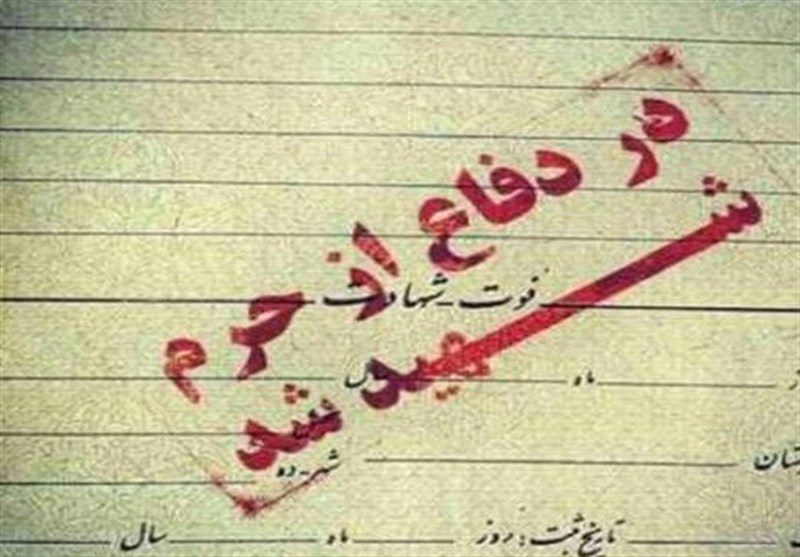 در دفاع از حرم
شهید شد
فوت - شهادت
ماه سال
شهر - ده
تاریخ ثبت: روز ماه سال